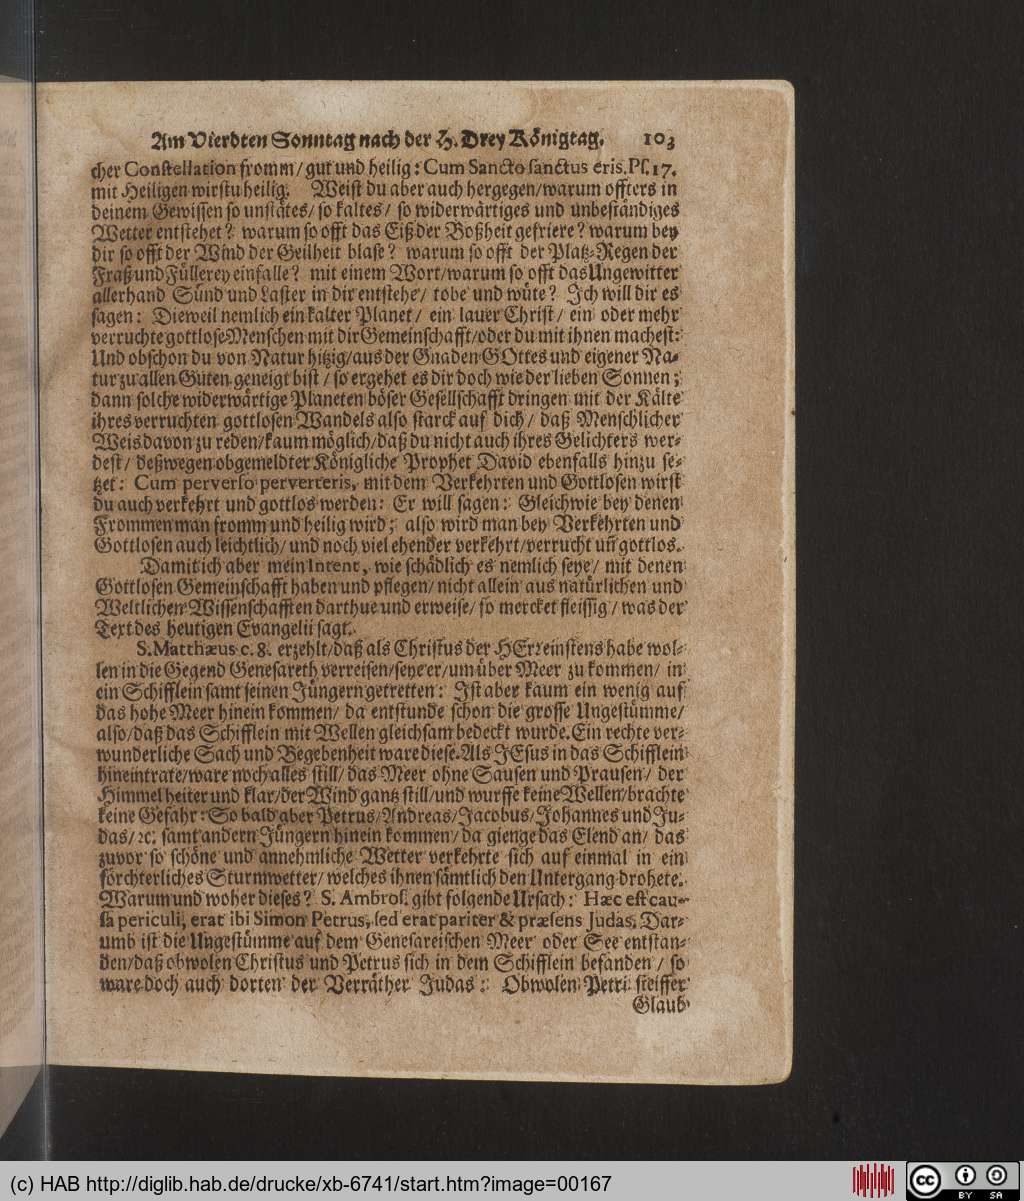 Am Vierdten Sonntag nach der H. Drey Königtag. 103
cher Constellation fromm/ gut und heilig: Cum Sancto sanctus eris. Ps. 17.
mit Heiligen wirstu heilig. Weist du aber auch hergegen/warum offters in
deinem Gewissen so unstätes/ so kaltes/ so widerwärtiges und unbeständiges
Wetter entstehet? warum so offt das Eiß der Boßheit gefriere? warum bey
dir so offt der Wind der Geilheit blase? warum so offt der Platz-Regen der
Fraß und Füllerey einfalle? mit einem Wort/warum so offt das Ungewitter
allerhand Sünd und Laster in dir entstehe/ tobe und wüte? Ich will dir es
sagen: Dieweil nemlich ein kalter Planet/ ein lauer Christ/ ein oder mehr
verruchte gottlose Menschen mit dir Gemeinschafft/oder du mit ihnen machest:
Und obschon du von Natur hitzig/aus der Gnaden GOttes und eigener Na-
tur zu allen Guten geneigt bist/ so ergehet es dir doch wie der lieben Sonnen;
dann solche widerwärtige Planeten böser Gesellschafft dringen mit der Kälte
ihres verruchten gottlosen Wandels also starck auf dich/ daß Menschlicher
Weis davon zu reden/kaum möglich/daß du nicht auch ihres Gelichters wer-
dest/ deßwegen obgemeldter Königliche Prophet David ebenfalls hinzu se-
tzet: Cum perverso perverteris, mit dem Verkehrten und Gottlosen wirst
du auch verkehrt und gottlos werden: Er will sagen: Gleichwie bey denen
Frommen man fromm und heilig wird; also wird man bey Verkehrten und
Gottlosen auch leichtlich/ und noch viel ehender verkehrt/verrucht uñ gottlos.
Damit ich aber mein Intent, wie schädlich es nemlich seye/ mit denen
Gottlosen Gemeinschafft haben und pflegen/ nicht allein aus natürlichen und
Weltlichen Wissenschafften darthue und erweise/ so mercket fleissig/ was der
Text des heutigen Evangelii sagt.
S. Matthæus c. 8. erzehlt/daß als Christus der HErr einstens habe wol-
len in die Gegend Genesareth verreisen/seye er/um über Meer zu kommen/ in
ein Schifflein samt seinen Jüngern getretten: Ist aber kaum ein wenig auf
das hohe Meer hinein kommen/ da entstunde schon die grosse Ungestümme/
also/daß das Schifflein mit Wellen gleichsam bedeckt wurde. Ein rechte ver-
wunderliche Sach und Begebenheit ware diese. Als JEsus in das Schifflein
hineintrate/ware noch alles still/ das Meer ohne Sausen und Prausen/ der
Himmel heiter und klar/der Wind gantz still/und wurffe keine Wellen/brachte
keine Gefahr: So bald aber Petrus/Andreas/Jacobus/Johannes und Ju-
das/ ꝛc. samt andern Jüngern hinein kommen/ da gienge das Elend an/ das
zuvor so schöne und annehmliche Wetter verkehrte sich auf einmal in ein
förchterliches Sturmwetter/ welches ihnen sämtlich den Untergang drohete.
Warum und woher dieses? S. Ambros. gibt folgende Ursach: Hæc est cau-
sa periculi, erat ibi Simon Petrus, sed erat pariter & præsens Judas. Dar-
umb ist die Ungestümme auf dem Genesareischen Meer oder See entstan-
den/daß obwolen Christus und Petrus sich in dem Schifflein befanden/ so
ware doch auch dorten der Verräther Judas: Obwolen Petri steiffer
Glaub
(c) HAB http://diglib.hab.de/drucke/xb-6741/start.htm?image=00167
cc BY SA